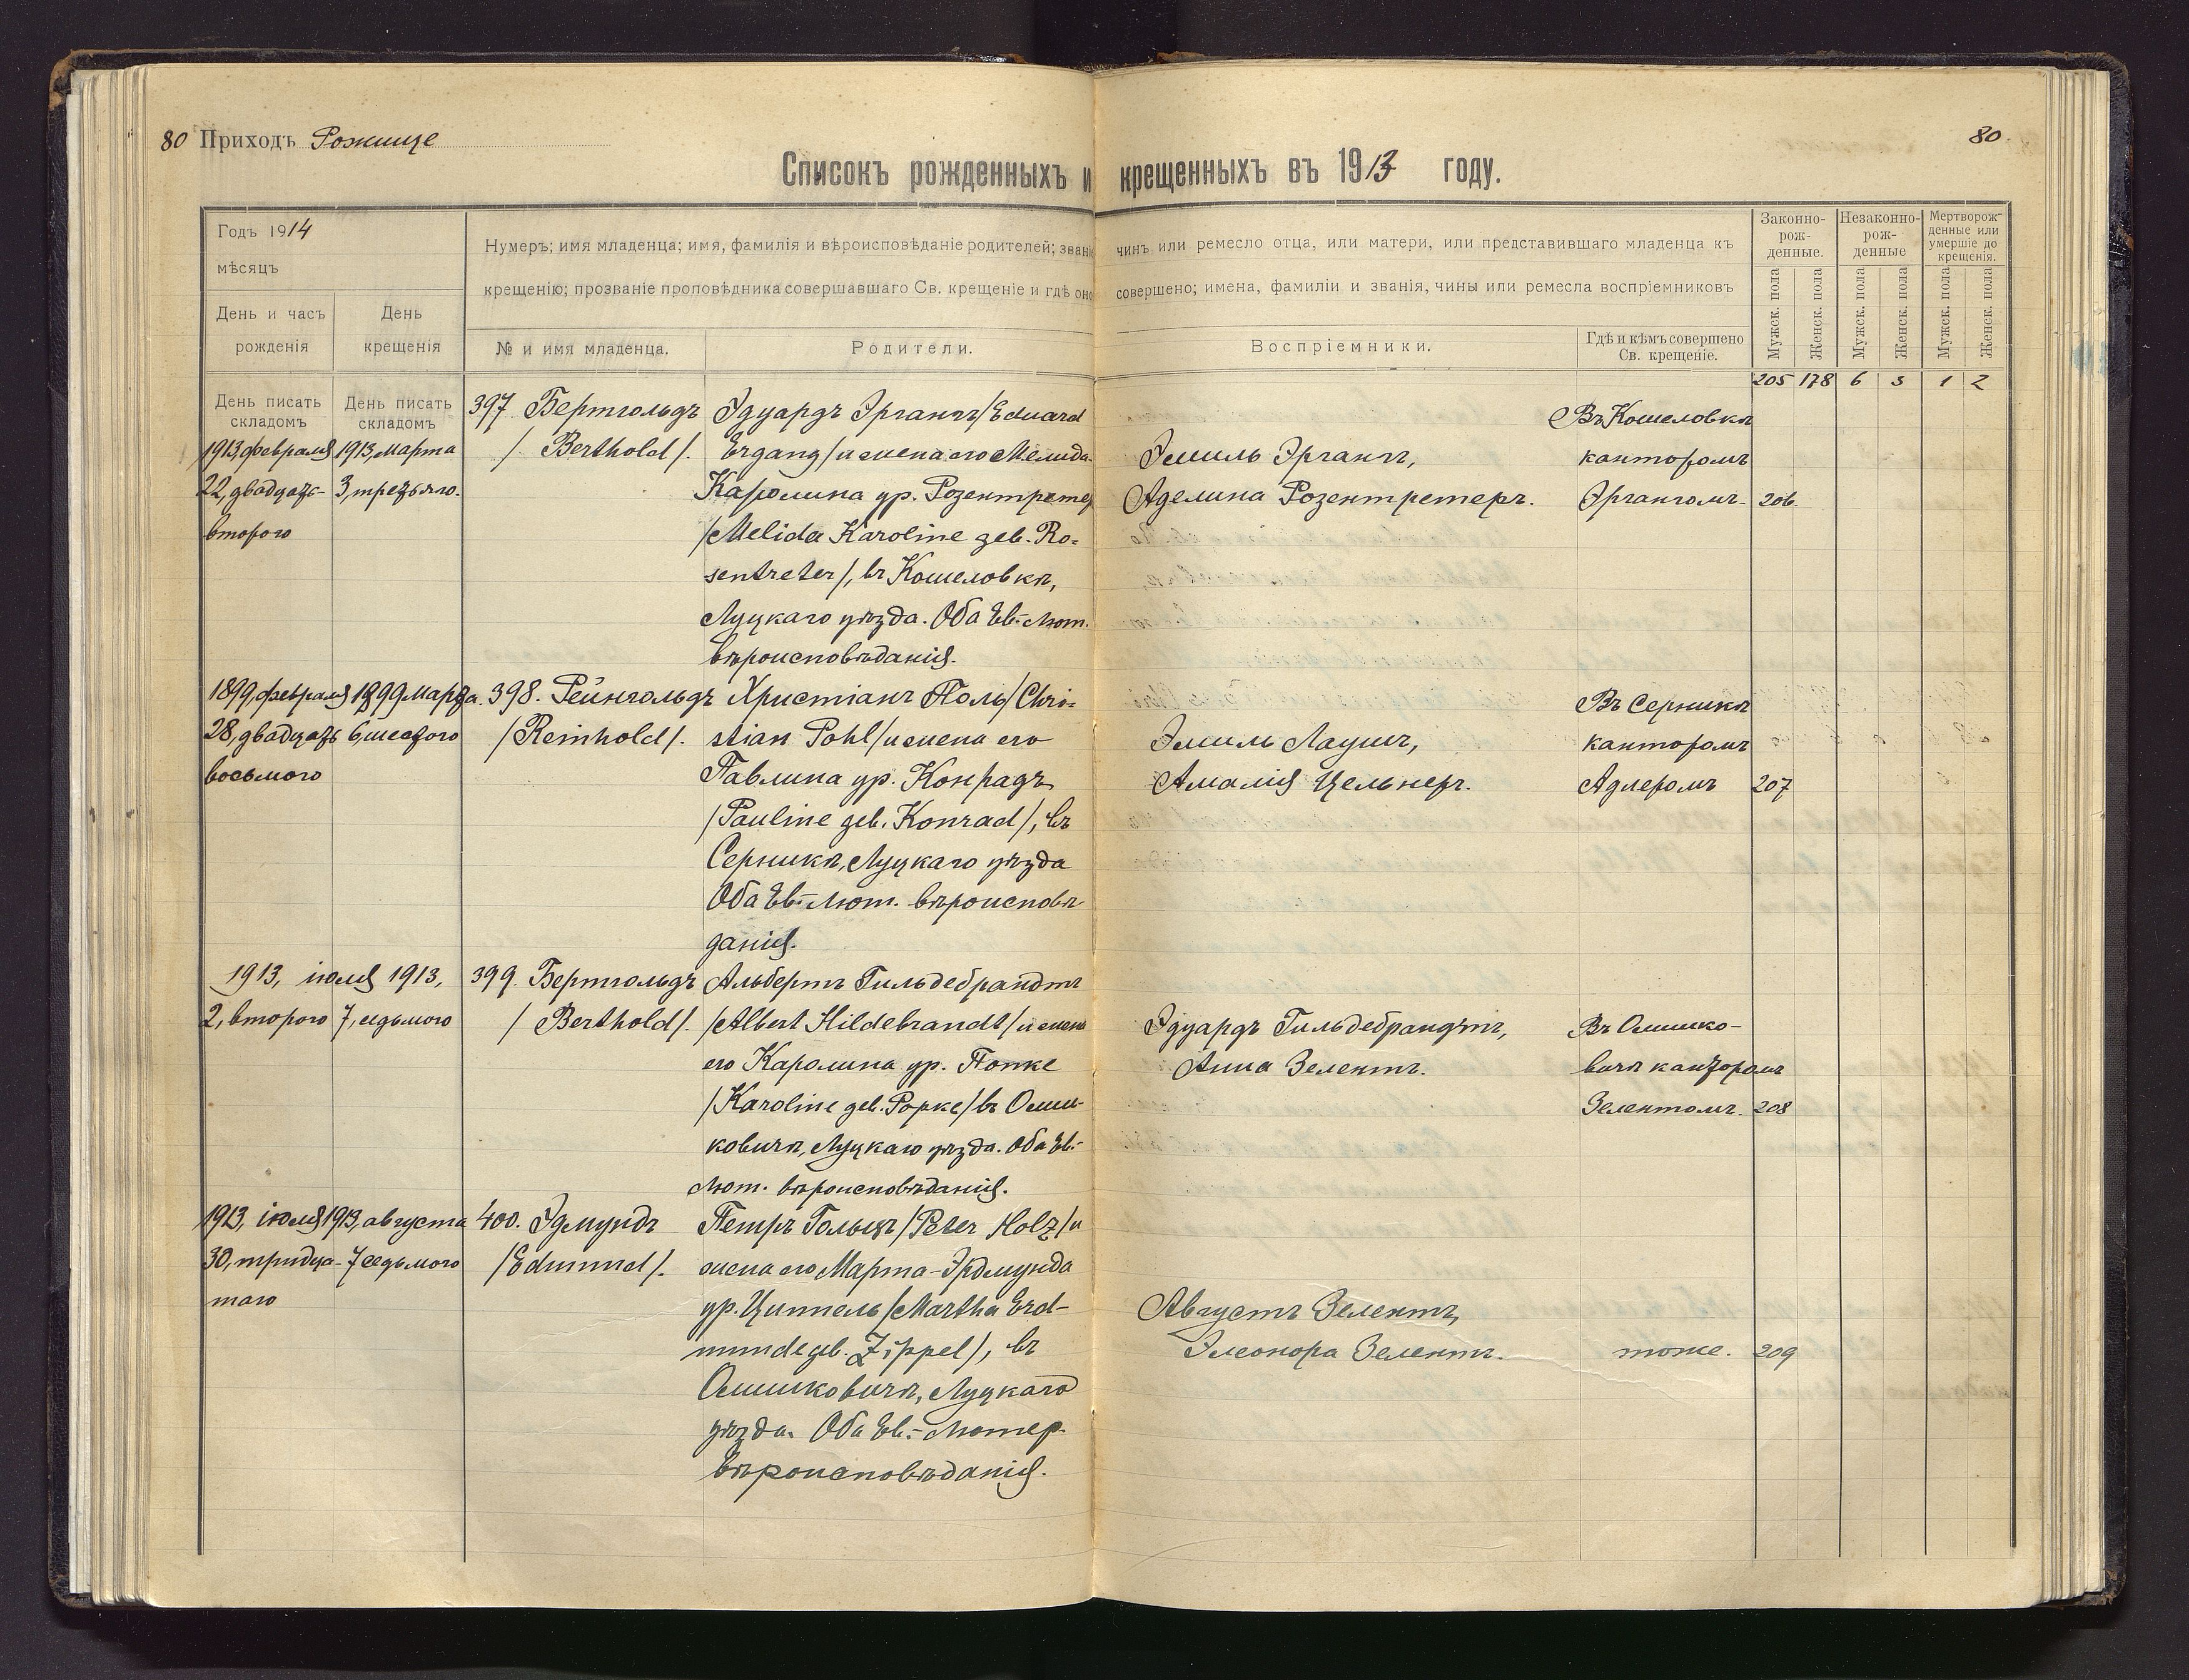 80 Приходъ Рожище
80.
Списокъ рожденныхъ и крещенныхъ въ 1913 году.
Годъ 1914
мѣсяцъ
День и часъ рожденія
День крещенія
Нумеръ; имя младенца; имя, фамилія и вѣроисповѣданіе родителей; званіе чинъ или ремесло отца, или матери, или представившаго младенца къ
крещенію; прозваніе проповѣдника совершавшаго Св. крещеніе и гдѣ оно совершено; имена, фамиліи и званія, чины или ремесла воспріемниковъ
№ и имя младенца.
Родители.
Воспріемники.
Гдѣ и кѣмъ совершено
Св. крещеніе.
Законно-
рож-
денные.
Незаконно-
рож-
денные
Мертворож-
денные или
умершіе до
крещенія.
Мужск. пола
Женск. пола
Мужск. пола
Женск. пола
Мужск. пола
Женск. пола
205 178 6 5 1 2
День писать
складомъ
День писать
складомъ
1913, февраля
22, двадцать-
второго
1913, марта
3, третьяго.
397 Бертгольдъ
/ Berthold /.
Эдуардъ Эргангъ /Eduard
Ergang/ и жена его Мелида-
Каролина ур. Розентретеръ
/Melida Karoline geb. Ro=
sentreter/, въ Кошеловкѣ,
Луцкаго уѣзда. Оба Ев.-Лют.
вѣроисповѣданія.
Эмиль Эргангъ,
Аделина Розентретеръ.
Въ Кошеловкѣ
канторомъ
Эргангомъ-
206.
1899, февраля
28, двадцать
восьмого
1899 марта.
6, шестого
398. Рейнгольдъ
/Reinhold/.
Христіанъ Поль /Chri=
stian Pohl/ и жена его
Павлина ур. Конрадъ
/Pauline geb. Konrad/, въ
Серникѣ, Луцкаго уѣзда
Оба Ев.-Лют. вѣроисповѣ
данія.
Эмиль Лаушъ,
Амалія Цельнеръ.
Въ Серникѣ
канторомъ
Адлеромъ
207
1913, іюля
2, второго
1913,
7, седьмого
399. Бертгольдъ
/ Berthold /.
Альбертъ Гильдебрандтъ
/Albert Hildebrandt/ и жена
его Каролина ур. Попке
/Karoline geb. Popke/ въ Олыш-
ковичѣ, Луцкаго уѣзда. Оба Ев.-
Лют. вѣроисповѣданія.
Эдуардъ Гильдебрандтъ,
Анна Зелентъ.
Въ Олышко-
вичѣ канторомъ
Зелентомъ.
208
1913, іюля
30, тридца-
таго
1913, августа
7 седьмого
400. Эдмундъ
/Edmund/.
Петръ Гольцъ /Peter Holz/ и
жена его Марта-Эрдмунда
ур. Циппель /Martha Erd-
munde geb. Zippel/, въ
Олышковичѣ, Луцкаго
уѣзда. Оба Ев.-Лютер.
вѣроисповѣданія.
Августъ Зелентъ,
Элеонора Зелентъ.
тоже.
209